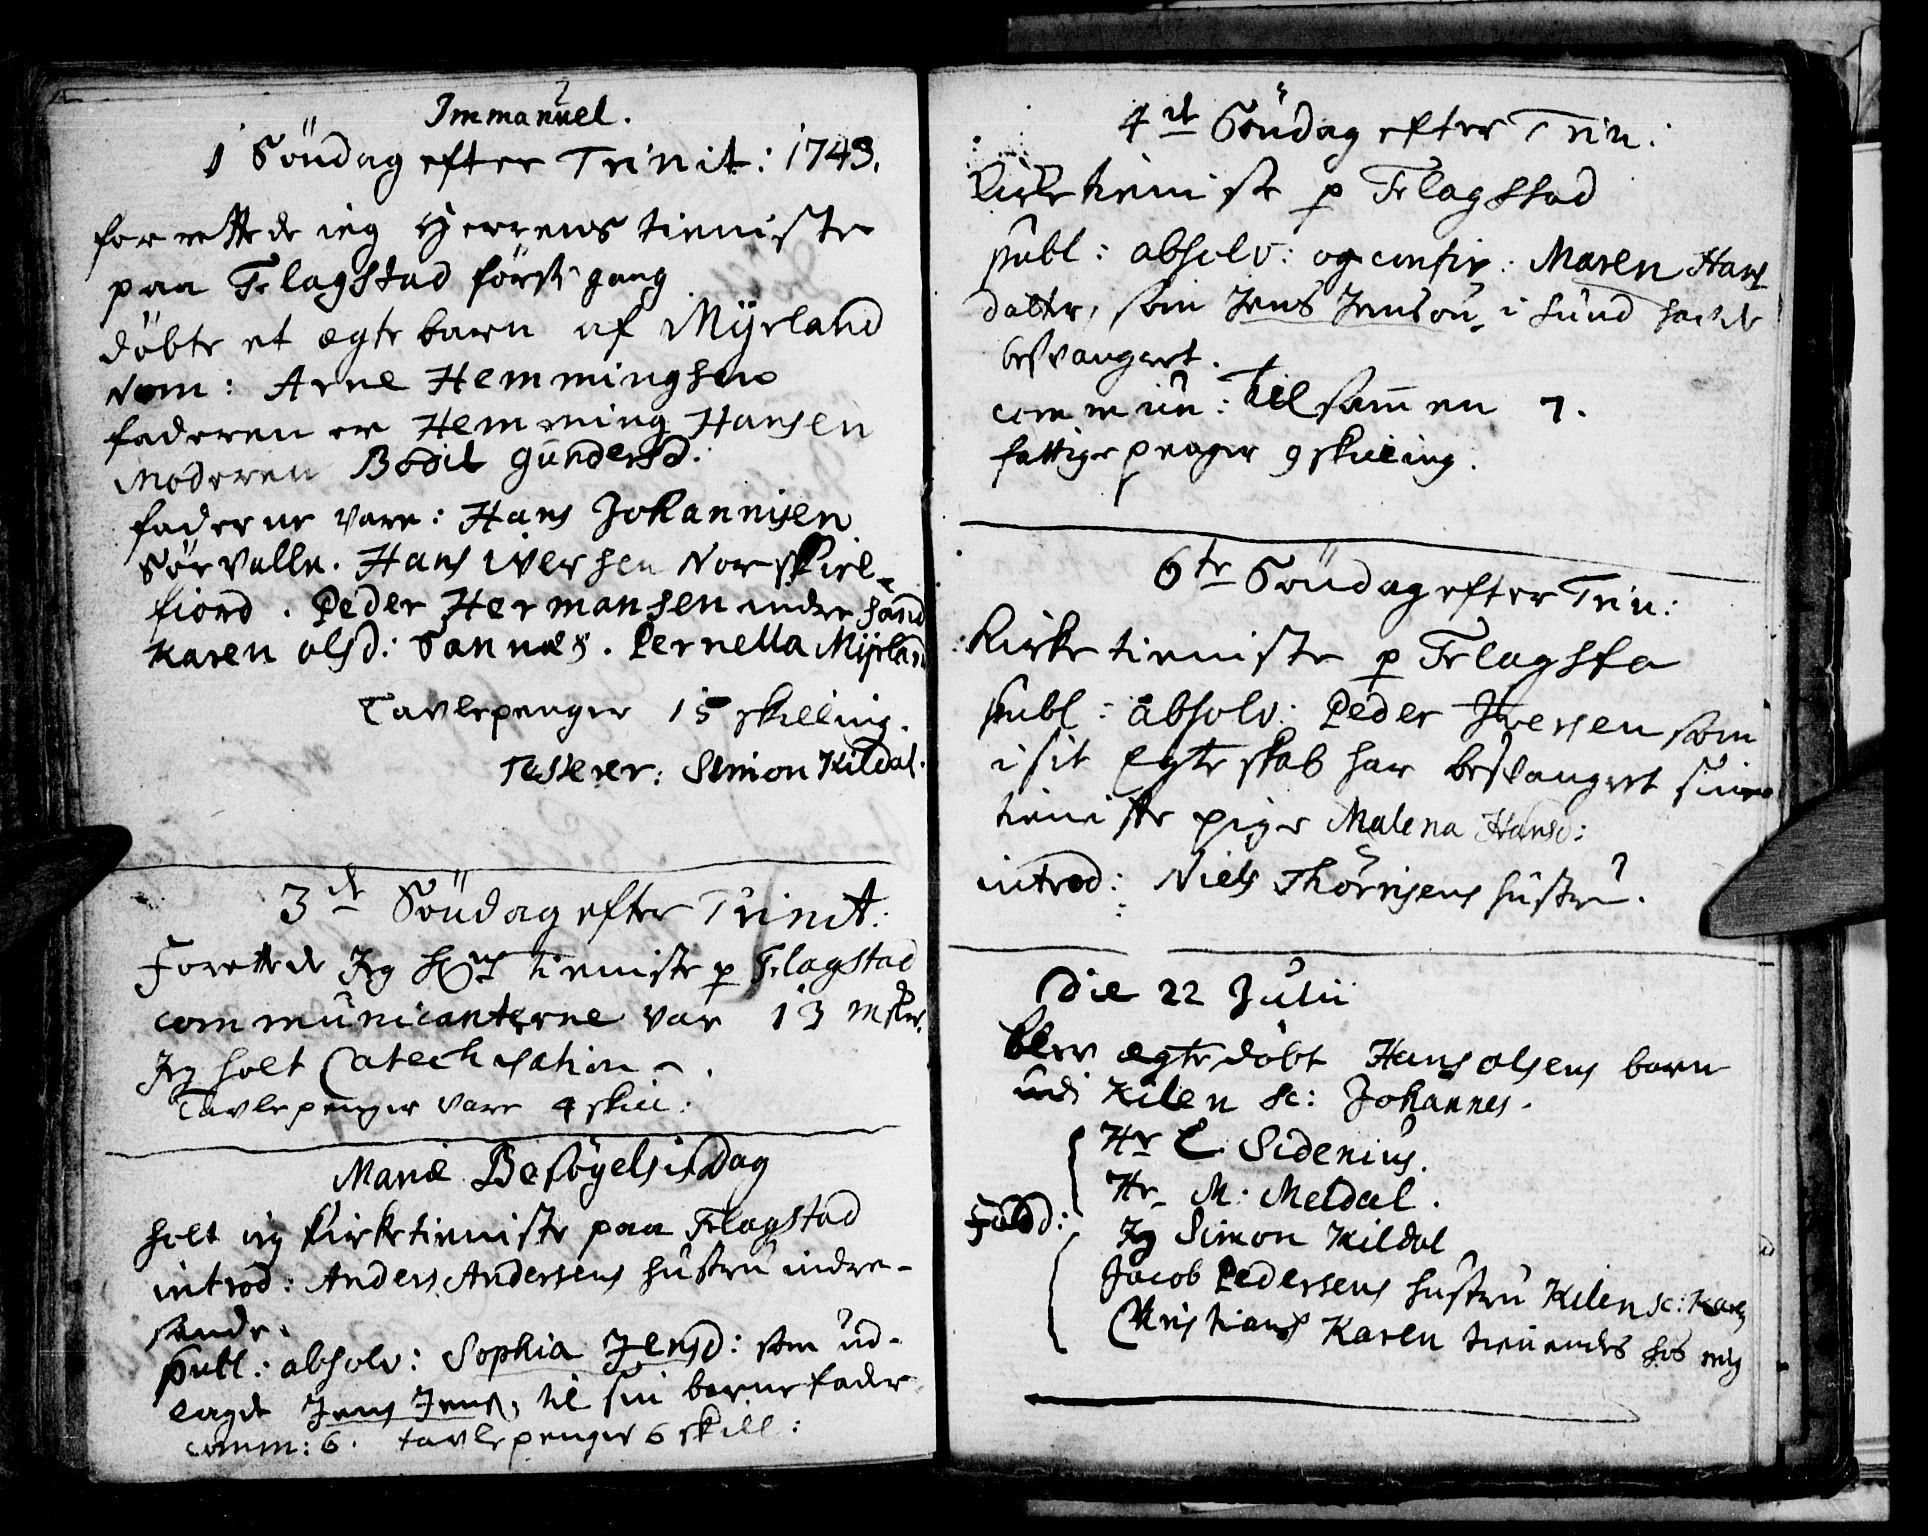 Immanuel.
1 Söndag efter Trinit: 1743.
forrettede ieg Herrens tieniste
paa Flagstad första gang
döbte et ægte barn af Myrland
Nom: Arne Hemmingsen
faderen er Hemming Hansen
Moderen Bodil Gundersd.
fadderne vare: Hans Johannisen
Sörvalle. Hans iversen Norskiel-
fiord. Peder Hermansen indre sand
Karen olsd: Sannæs. Pernella Myrland
Tavlepenger 15 skilling.
Testerer: Simon Kildal.
3de Söndag efter Trinit:
Forettede Jeg Hens tieniste p Flagstad
communicanterne var 13 msker.
Jeg holt Catechisation.
Tavlepenger vare 4 skill:
Mariæ Besøgelsis Dag
holt ieg kirketieniste paa Flagstad
introd: Anders Andersens hustru indre-
sande.
publ: absolv: Sophia Jensd: som ud-
lagde Jens Jens, til sin barnefader
comm: 6. tavlepenger 6 skill:
4de Söndag efter Trin:
Kirketieniste p Flagstad
publ: absolv: og confir: Maren Hans
datter, som Jens Jensøn i sund hafde
besvangert.
commun: tilsammen 7.
fattige penger 9 skilling.
6te Söndag efter Trin:
Kirke tieniste p Flagsta
publ: absolv: Peder Iversen som
i sit Egteskab har besvangret sin
tieniste pige Malena Hansd:
introd: Niels Thörrisens hustru.
Die 22 Julii
blev ægte döbt Hans olsens barn
udi Kilen sc: Johannes.
Hr C. Sidenius.
Hr. M: Meldal.
Fadd:
Jeg Simon Kildal
Jacob Pedersens hustru Kilen sc: Karen
Christians Karen tienendes hos mig